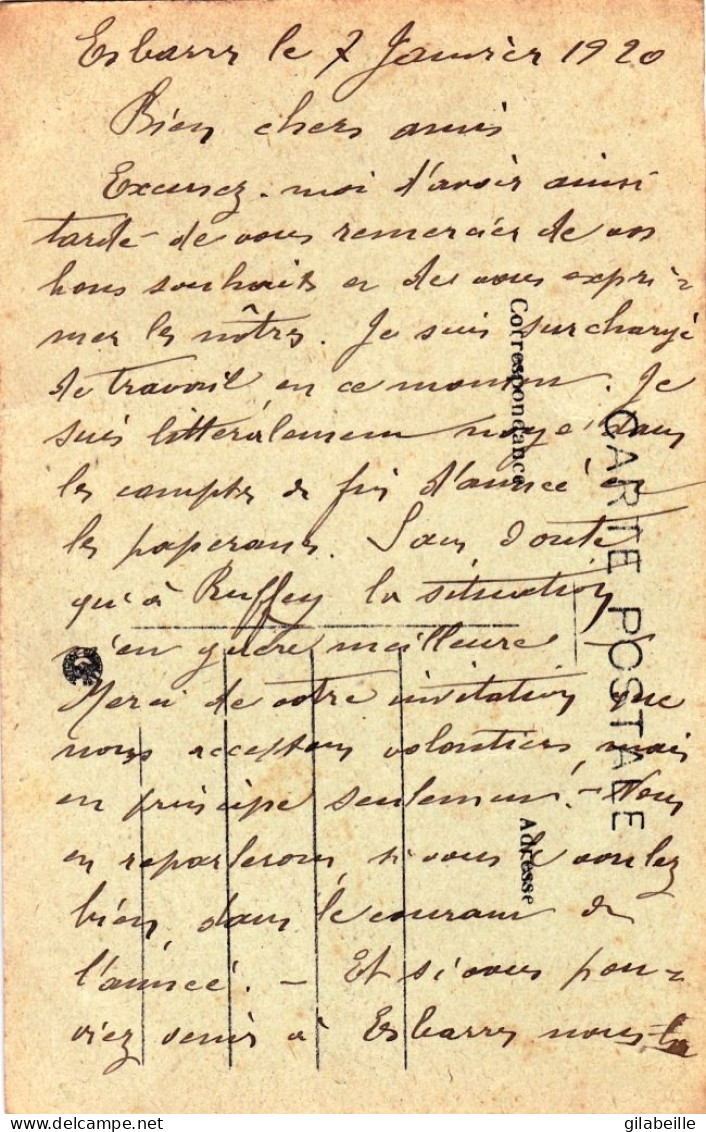 Esbarres le 7 Janvier 1920
Bien chers amis
Excusez-moi d'avoir ainsi
tardé de vous remercier de vos
bons souhaits et de vous expri-
mer les nôtres. Je suis surchargé
de travail en ce moment. Je
suis littéralement noyé dans
les comptes de fin d'année
les paperans. Sans doute
qu'à Ruffey la situation
n'en guère meilleure
Merci de votre invitation que
nous acceptons volontiers, mais
en principe seulement. - Nous
en reparlerons, si vous voulez
bien, dans le courant de
l'année. - Et si vous pou-
viez venir à Esbarres nous
Correspondance
CARTE POSTALE
Adresse
gilabeille